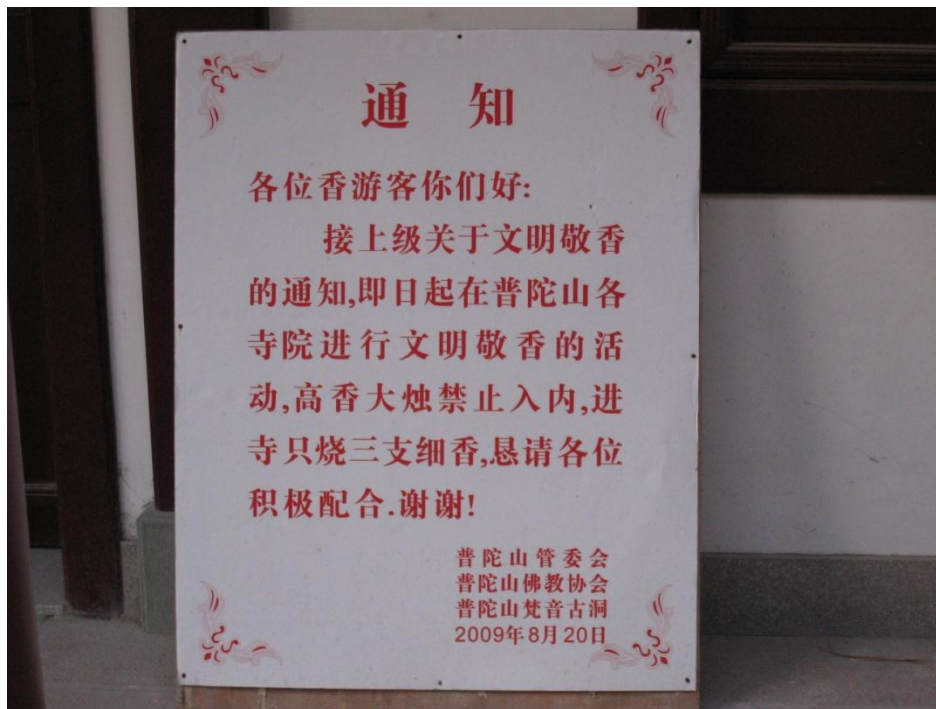 通 知
各位香游客你们好:
接上级关于文明敬香
的通知,即日起在普陀山各
寺院进行文明敬香的活
动,高香大烛禁止入内,进
寺只烧三支细香,恳请各位
积极配合.谢谢!
普陀山管委会
普陀山佛教协会
普陀山梵音古洞
2009年8月20日